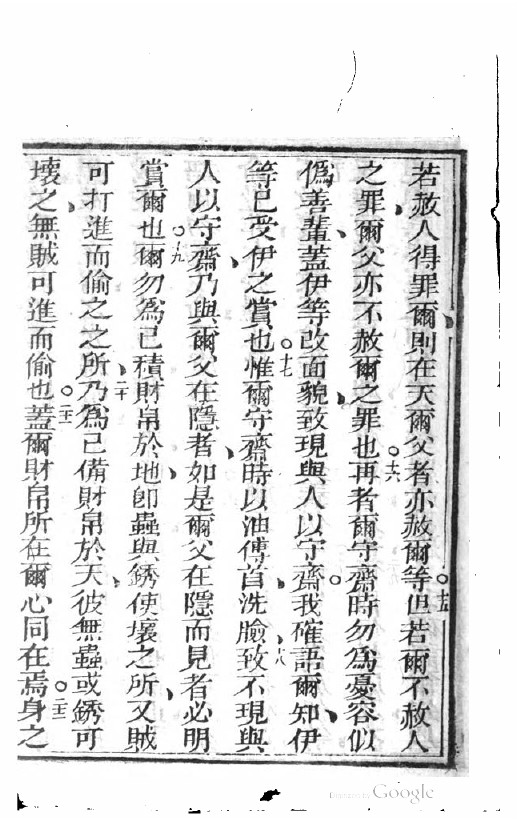 若赦人得罪爾、則在天爾父者亦赦爾等。十五但若爾不赦人
之罪、爾父亦不赦爾之罪也。十六再者爾守齋時勿爲憂容似
僞善輩、蓋伊等改面貌、致現與人以守齋。我確語爾知、伊
等已受伊之賞也。十七惟爾守齋時以油傅首、洗臉、十八致不現與
人以守齋、乃與爾父在隱者、如是爾父在隱而見者必明
賞爾也。十九爾勿爲己積財帛於地、卽蟲與銹使壞之所、又賊
可打進而偷之之所、二十乃爲己備財帛於天、彼無蟲或銹可
壞之、無賊可進而偷也。二十一蓋爾財帛所在、爾心同在焉。二十二身之
Digitized by Google